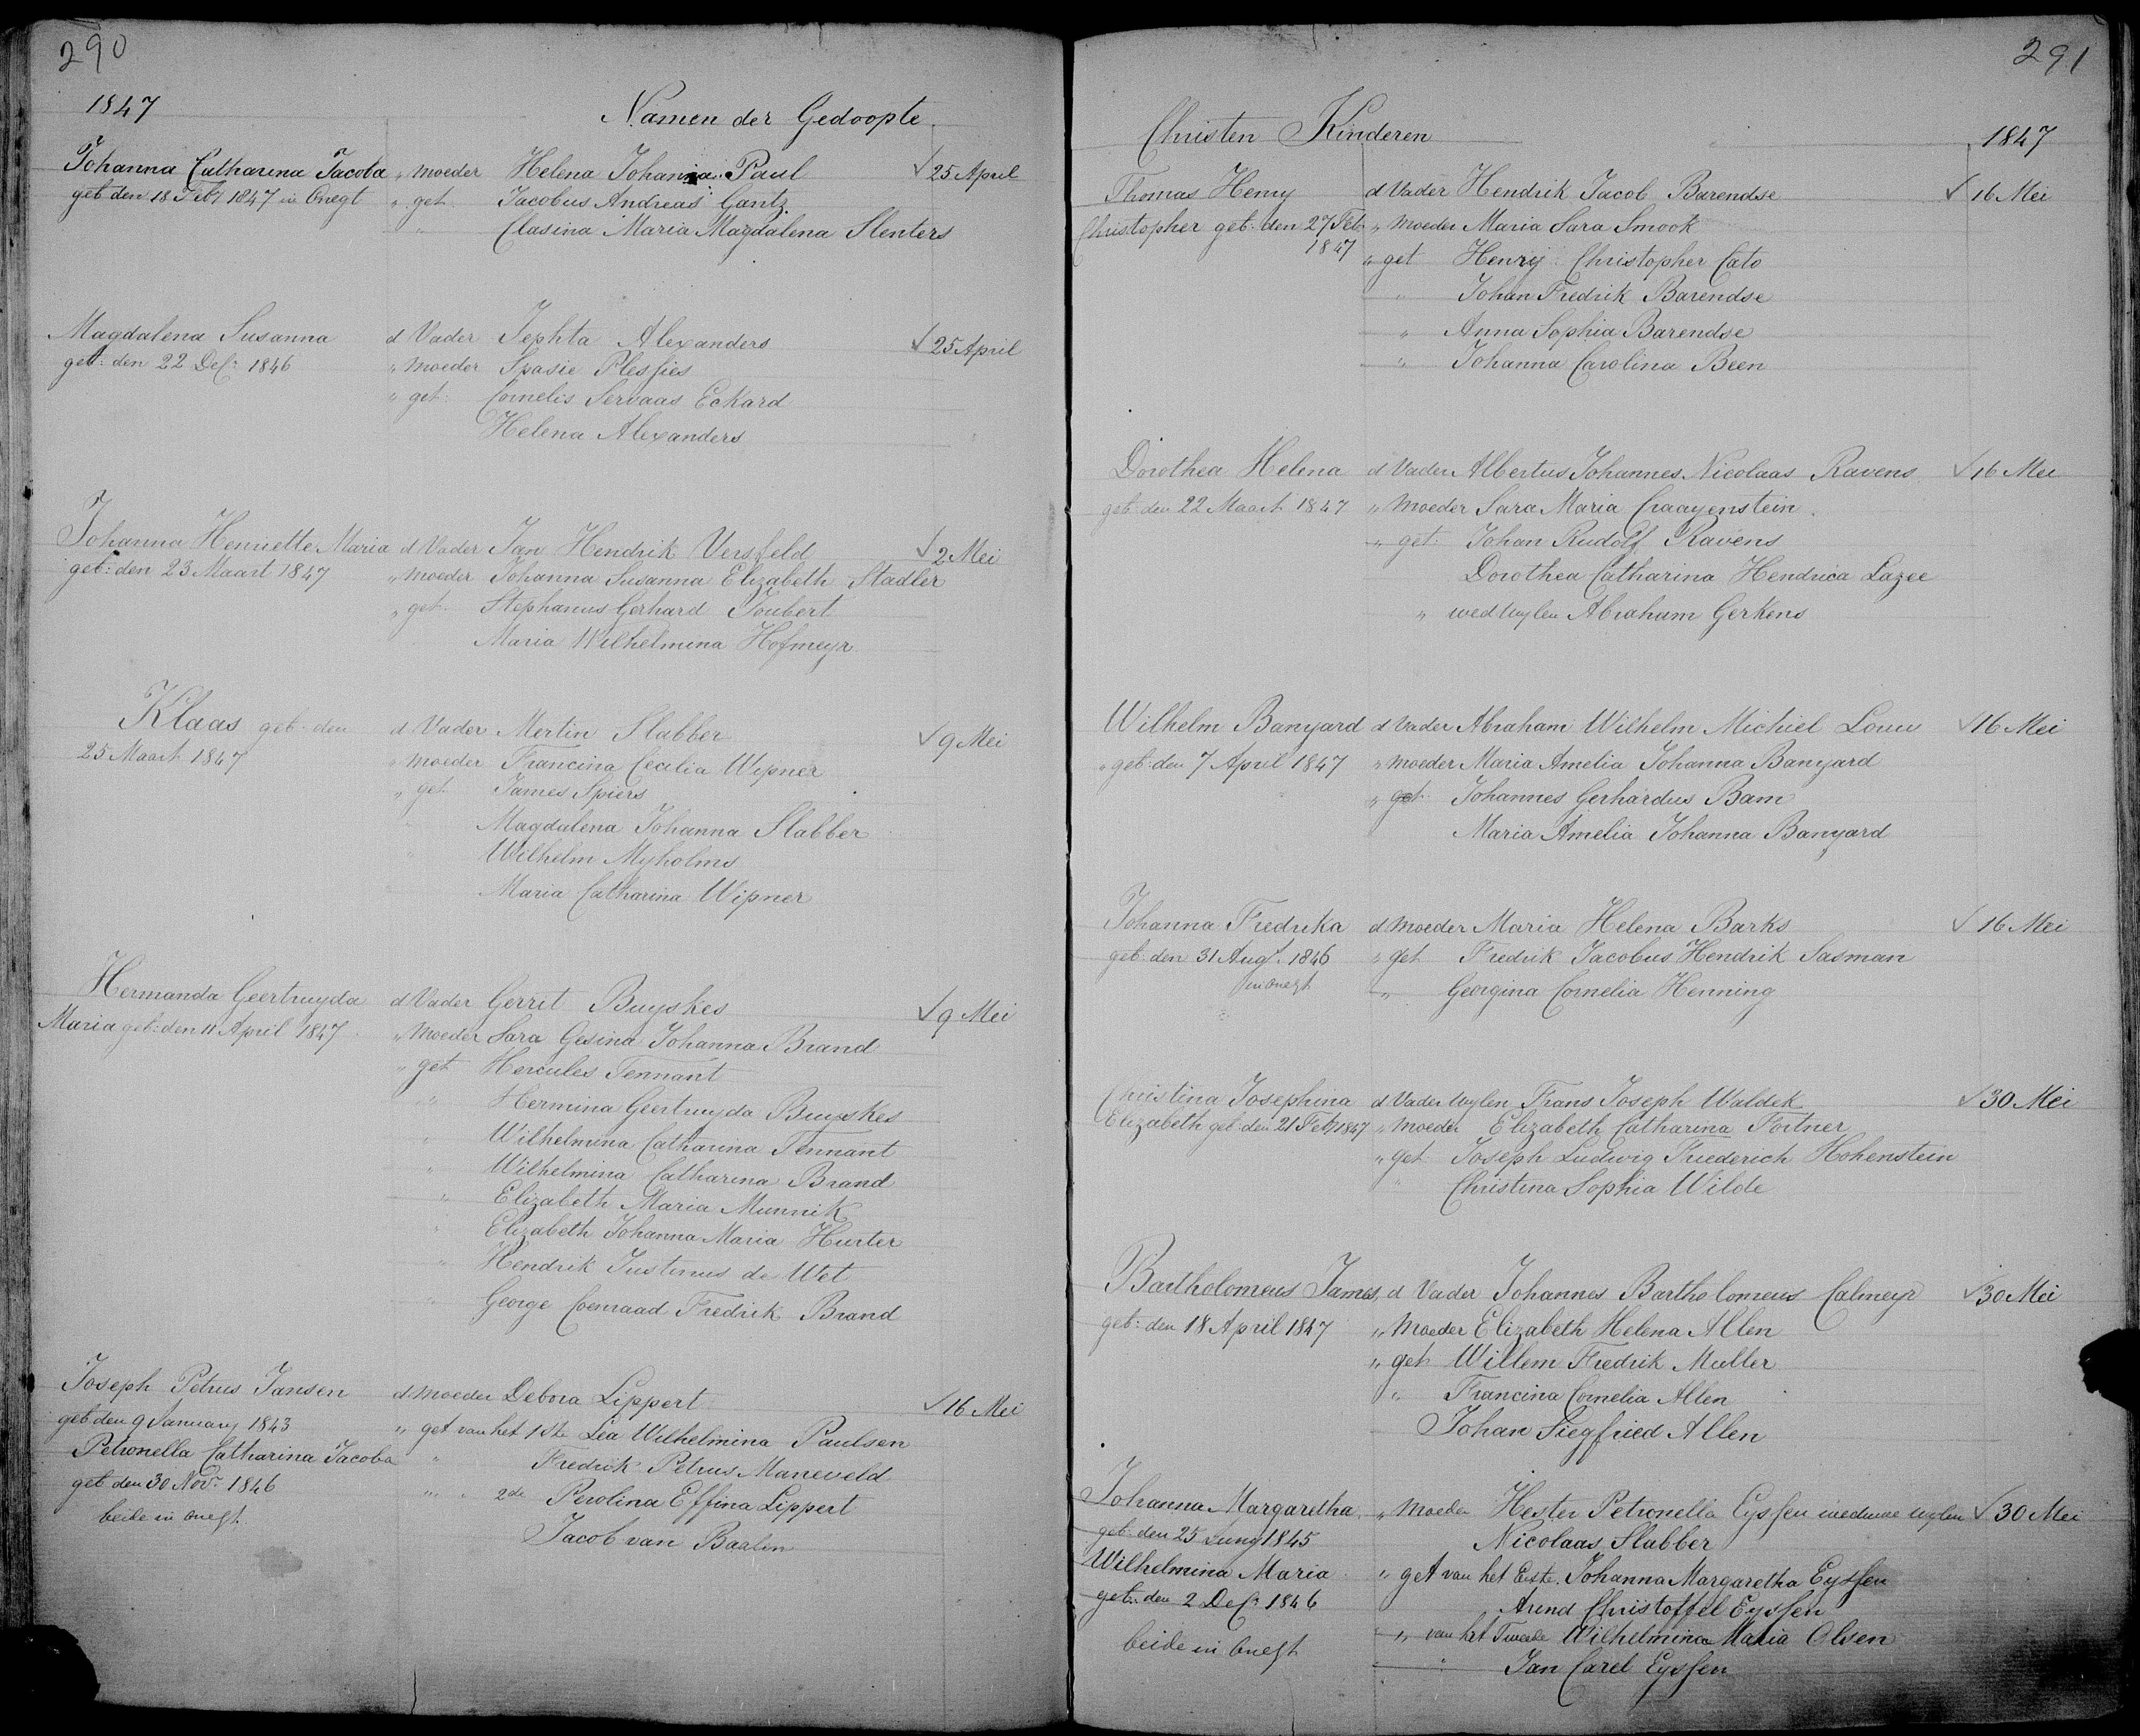 290
1847
Namen der Gedoopte
Johanna Catharina Jacoba „ moeder Helena Johanna Paul √ 25 April
geb den 18 Feby 1847 in Onegt „ get. Jacobus Andreas Gantz
„ Clasina Maria Magdalena Slenters
Magdalena Susanna d Vader Jephta Alexanders √ 25 April
geb: den 22 Decr 1846 „ moeder Spasie Plessies
„ get. Cornelis Servaas Eckard
Helena Alexanders
Johanna Henriette Maria d Vader Jan Hendrik Versfeld √ 2 Mei
geb: den 23 Maart 1847 „ moeder Johanna Susanna Elizabeth Stadler
„ get. Stephanus Gerhard Joubert
Maria Wilhelmina Hofmeyr
Klaas geb. den d Vader Mertin Slabber √ 9 Mei
25 Maart 1847 „ moeder Francina Cecilia Wipner
„ get. James Spiers
Magdalena Johanna Slabber
„ Wilhelm Myholms
Maria Catharina Wipner
Hermanda Geertruyda d Vader Gerrit Buyskes √ 9 Mei
Maria geb: den 11 April 1847 „ moeder Sara Gesina Johanna Brand
„ get Hercules Tennant
„ Hermina Geertruyda Buyskes
„ Wilhelmina Catharina Tennant
„ Wilhelmina Catharina Brand
„ Elizabeth Maria Munnik
„ Elizabeth Johanna Maria Hurter
„ Hendrik Justinus de Wet
„ George Coenraad Fredrik Brand
Joseph Petrus Jansen d. moeder Debora Lippert √ 16 Mei
geb den 9 January 1843 „ get van het 1ste Lea Wilhelmina Paulsen
Petronella Catharina Jacoba „ Fredrik Petrus Maneveld
geb den 30 Novr 1846 „ „ 2de Perolina Effina Lippert
beide in onegt. Jacob van Baalen
291
Christen Kinderen 1847
Thomas Henry d Vader Hendrik Jacob Barendse √ 16 Mei
Christopher geb: den 27 Feb „ moeder Maria Sara Smook
1847 „ get Henry Christopher Cato
„ Johan Fredrik Barendse
„ Anna Sophia Barendse
„ Johanna Carolina Been
Dorothea Helena d Vader Albertus Johannes Nicolaas Ravens √ 16 Mei
geb: den 22 Maart 1847 „ moeder Sara Maria Craayenstein
„ get: Johan Rudolf Ravens
Dorothea Catharina Hendrica Lazee
„ wed wylen Abraham Gerkens
Wilhelm Banyard d Vader Abraham Wilhelm Michiel Louw √ 16 Mei
„ geb: den 7 April 1847 „ moeder Maria Amelia Johanna Banyard
„ get. Johannes Gerhardus Bam
Maria Amelia Johanna Banyard
Johanna Fredrika d moeder Maria Helena Barks √ 16 Mei
geb: den 31 Augt. 1846 „ get Fredrik Jacobus Hendrik Sasman
in onegt „ Georgina Cornelia Henning
Christina Josephina d Vader wylen Frans Joseph Waldek √ 30 Mei
Elizabeth geb: den 21 Feby 1847 „ moeder Elizabeth Catharina Fortner
„ get Joseph Ludwig Friederich Hohenstein
„ Christina Sophia Wilde
Bartholomeus James, d Vader Johannes Bartholomeus Calmeyr √ 30 Mei
geb: den 18 April 1847 „ Moeder Elizabeth Helena Allen
„ get Willem Fredrik Muller
„ Francina Cornelia Allen
Johan Siegfried Allen
Johanna Margaretha „ moeder Hester Petronella Eyssen weduwe wylen √ 30 Mei
geb: den 25 Juny 1845 Nicolaas Slabber
Wilhelmina Maria „ get van het Eerste Johanna Margaretha Eyssen
geb: den 2 Decr 1846 Arend Christoffel Eyssen
beide in onegt „ van het Tweede Wilhelmina Maria Olsen
„ Jan Carel Eyssen